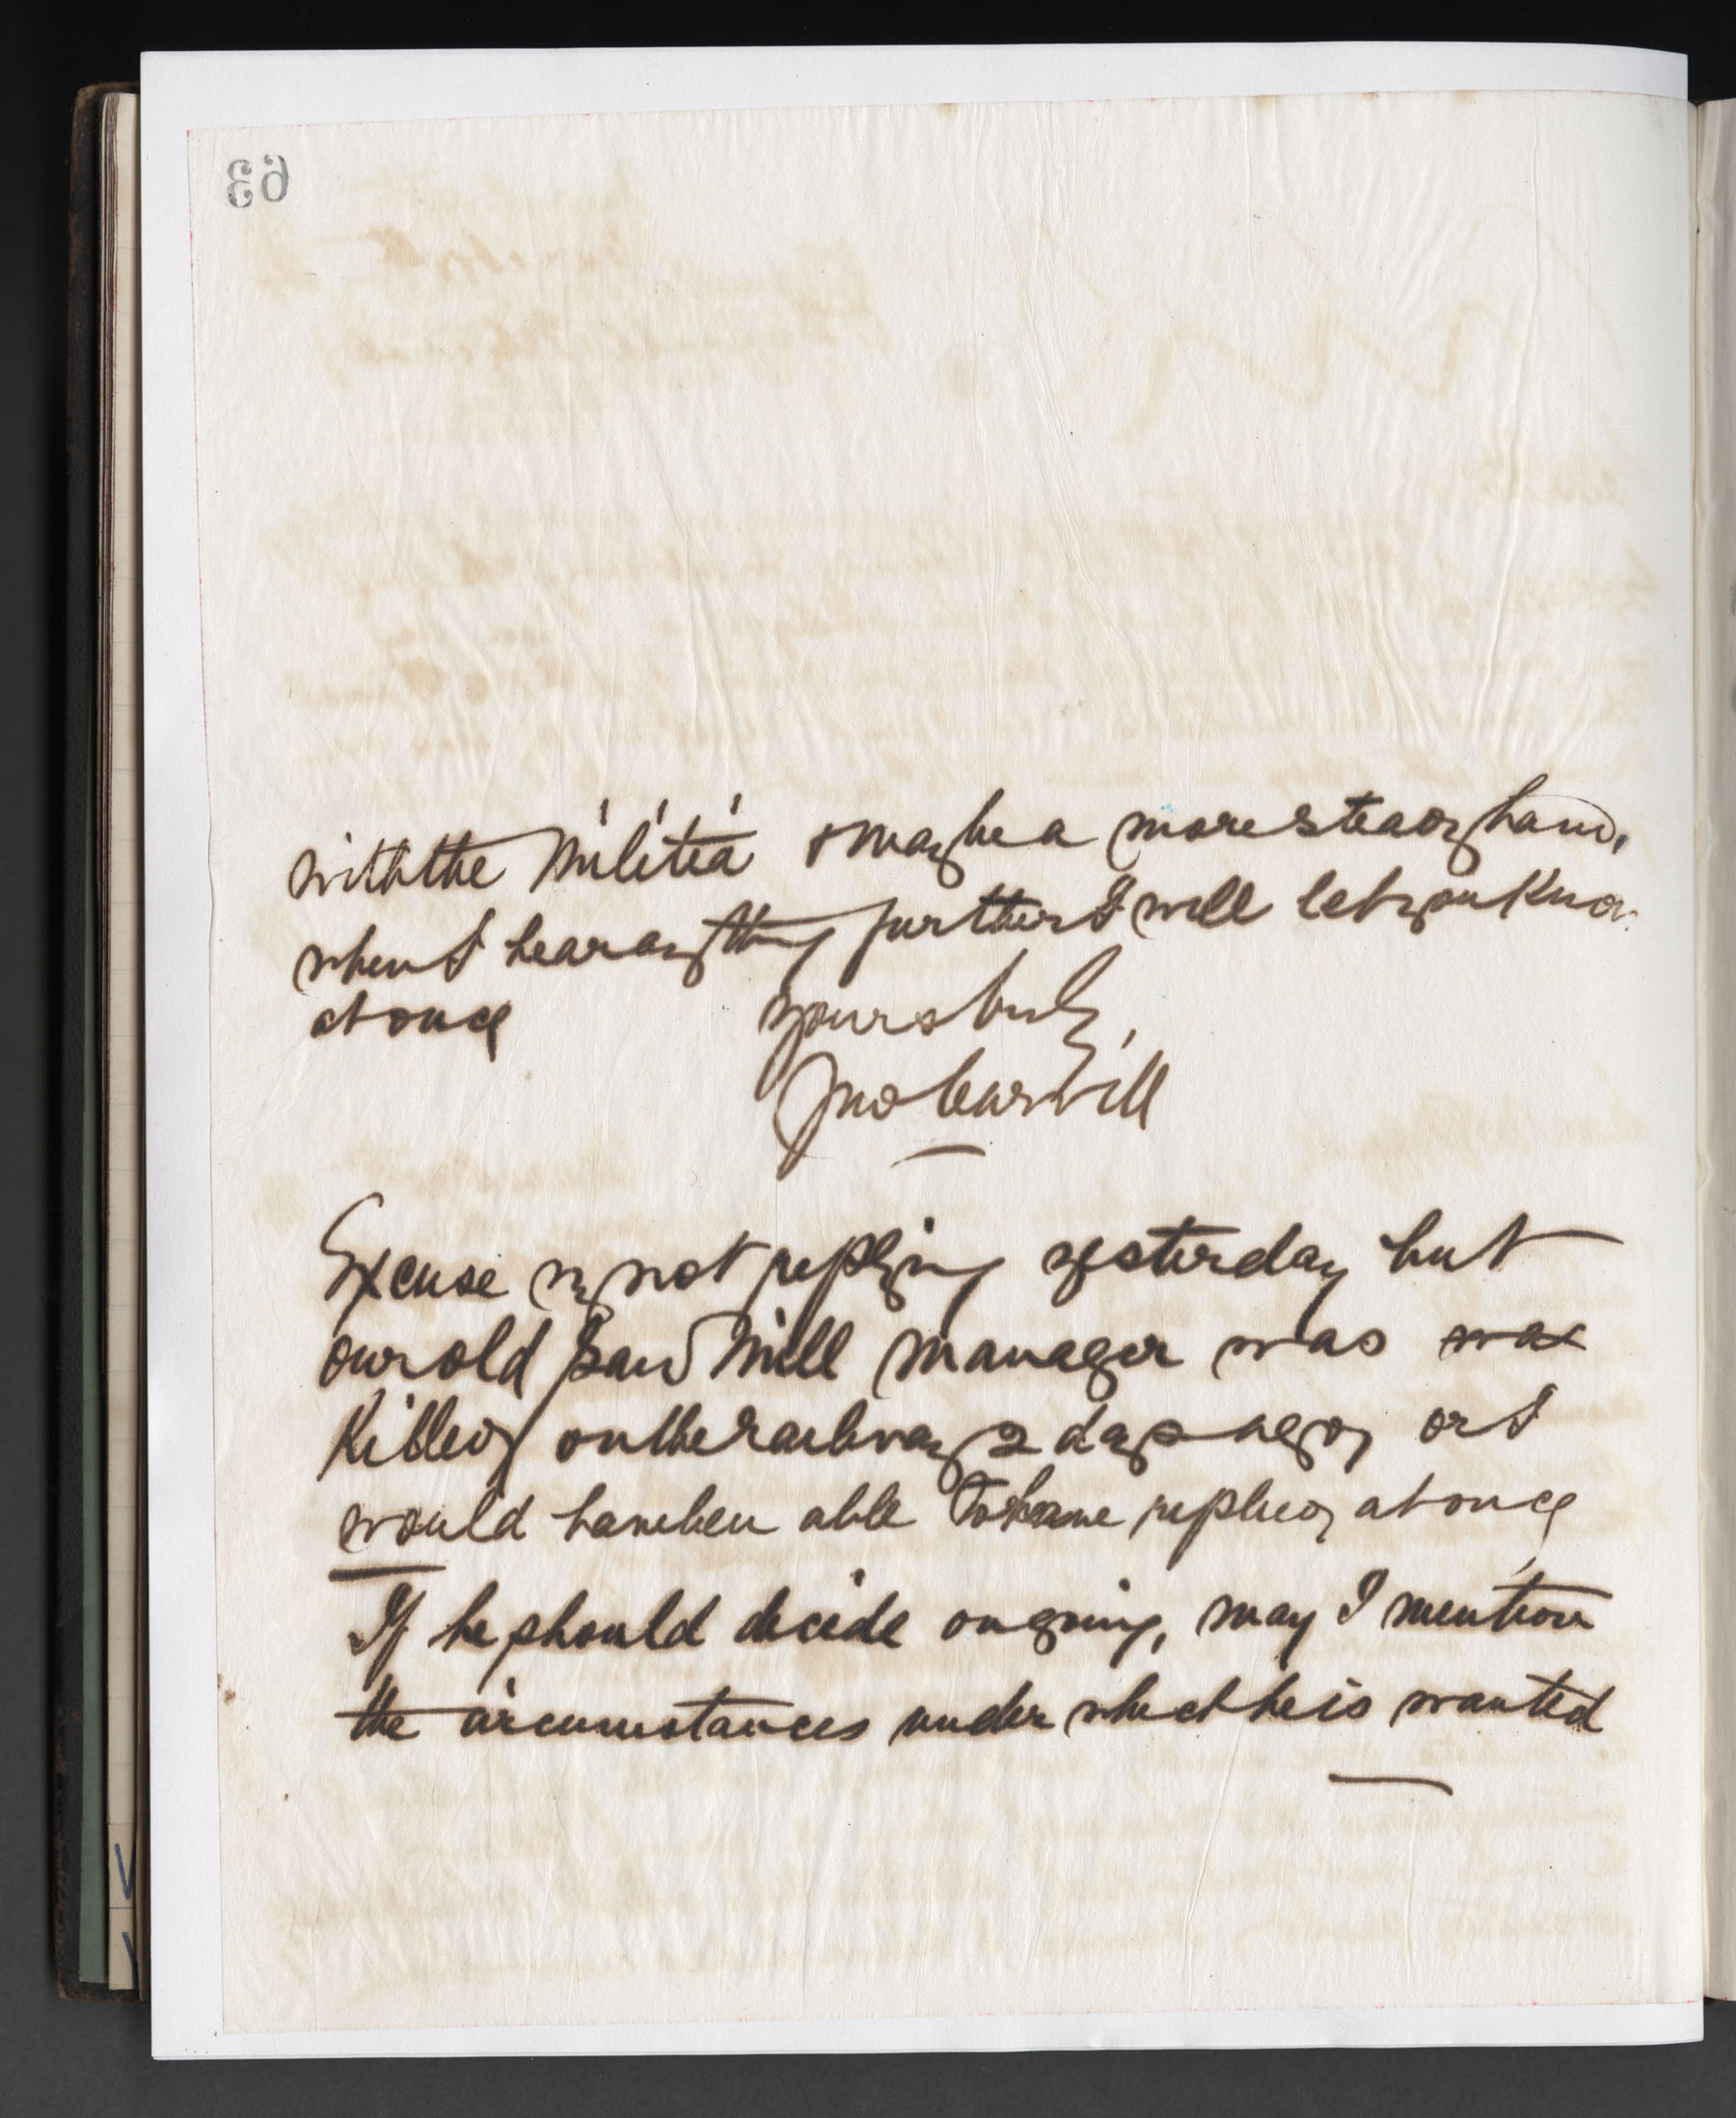 63
with the Militia & may be a more steady hand,
when I hear anything further I will let you know
at once Yours truly,
Jno Carvill
Excuse my not replying yesterday but
our old Saw Mill manager was was
Killed on the railway 2 days ago, or I
would have been able to have replied at once
If he should decide on going, may I mention
the circumstances under which he is wanted